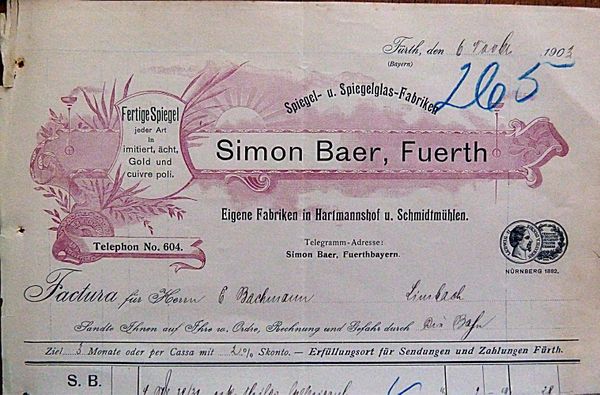 Fürth, den 6 1903
(Bayern)
265
Spiegel- u. Spiegelglas-Fabriken
Fertige Spiegel
jeder Art
in
imitiert, ächt,
Gold und
cuivre poli.
Simon Baer, Fuerth
Eigene Fabriken in Hartmannshof u. Schmidtmühlen.
Telephon No. 604.
Telegramm-Adresse:
Simon Baer, Fuerthbayern.
NÜRNBERG 1882.
Factura für Herrn E Bachmann Limbach
Sandte Ihnen auf Ihre w. Ordre, Rechnung und Gefahr durch Die Bahn
Ziel 3 Monate oder per Cassa mit 2% Skonto. — Erfüllungsort für Sendungen und Zahlungen Fürth.
S. B.